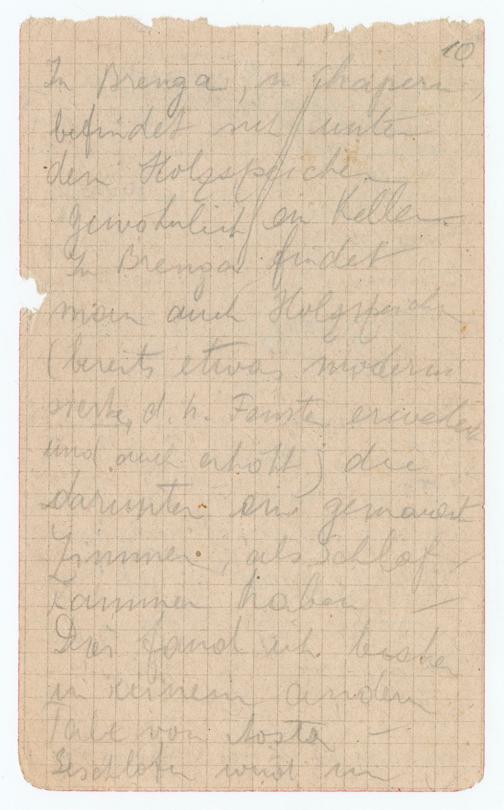 10
In Brenga, u Chapern,
befindet sich unter
den Holzspeichern
gewöhnlich ein Keller.
In Brenga findet
man auch Holzspeicher
(bereits etwas moderni-
sierte, d. h. Fenster erweitert
und auch erhöht) die
darunter ein gemauert
Zimmer, als Schlaf-
kammer haben –
Dies fand ich bisher
in keinem andern
Tale von Aosta –
Geschlafen wird im